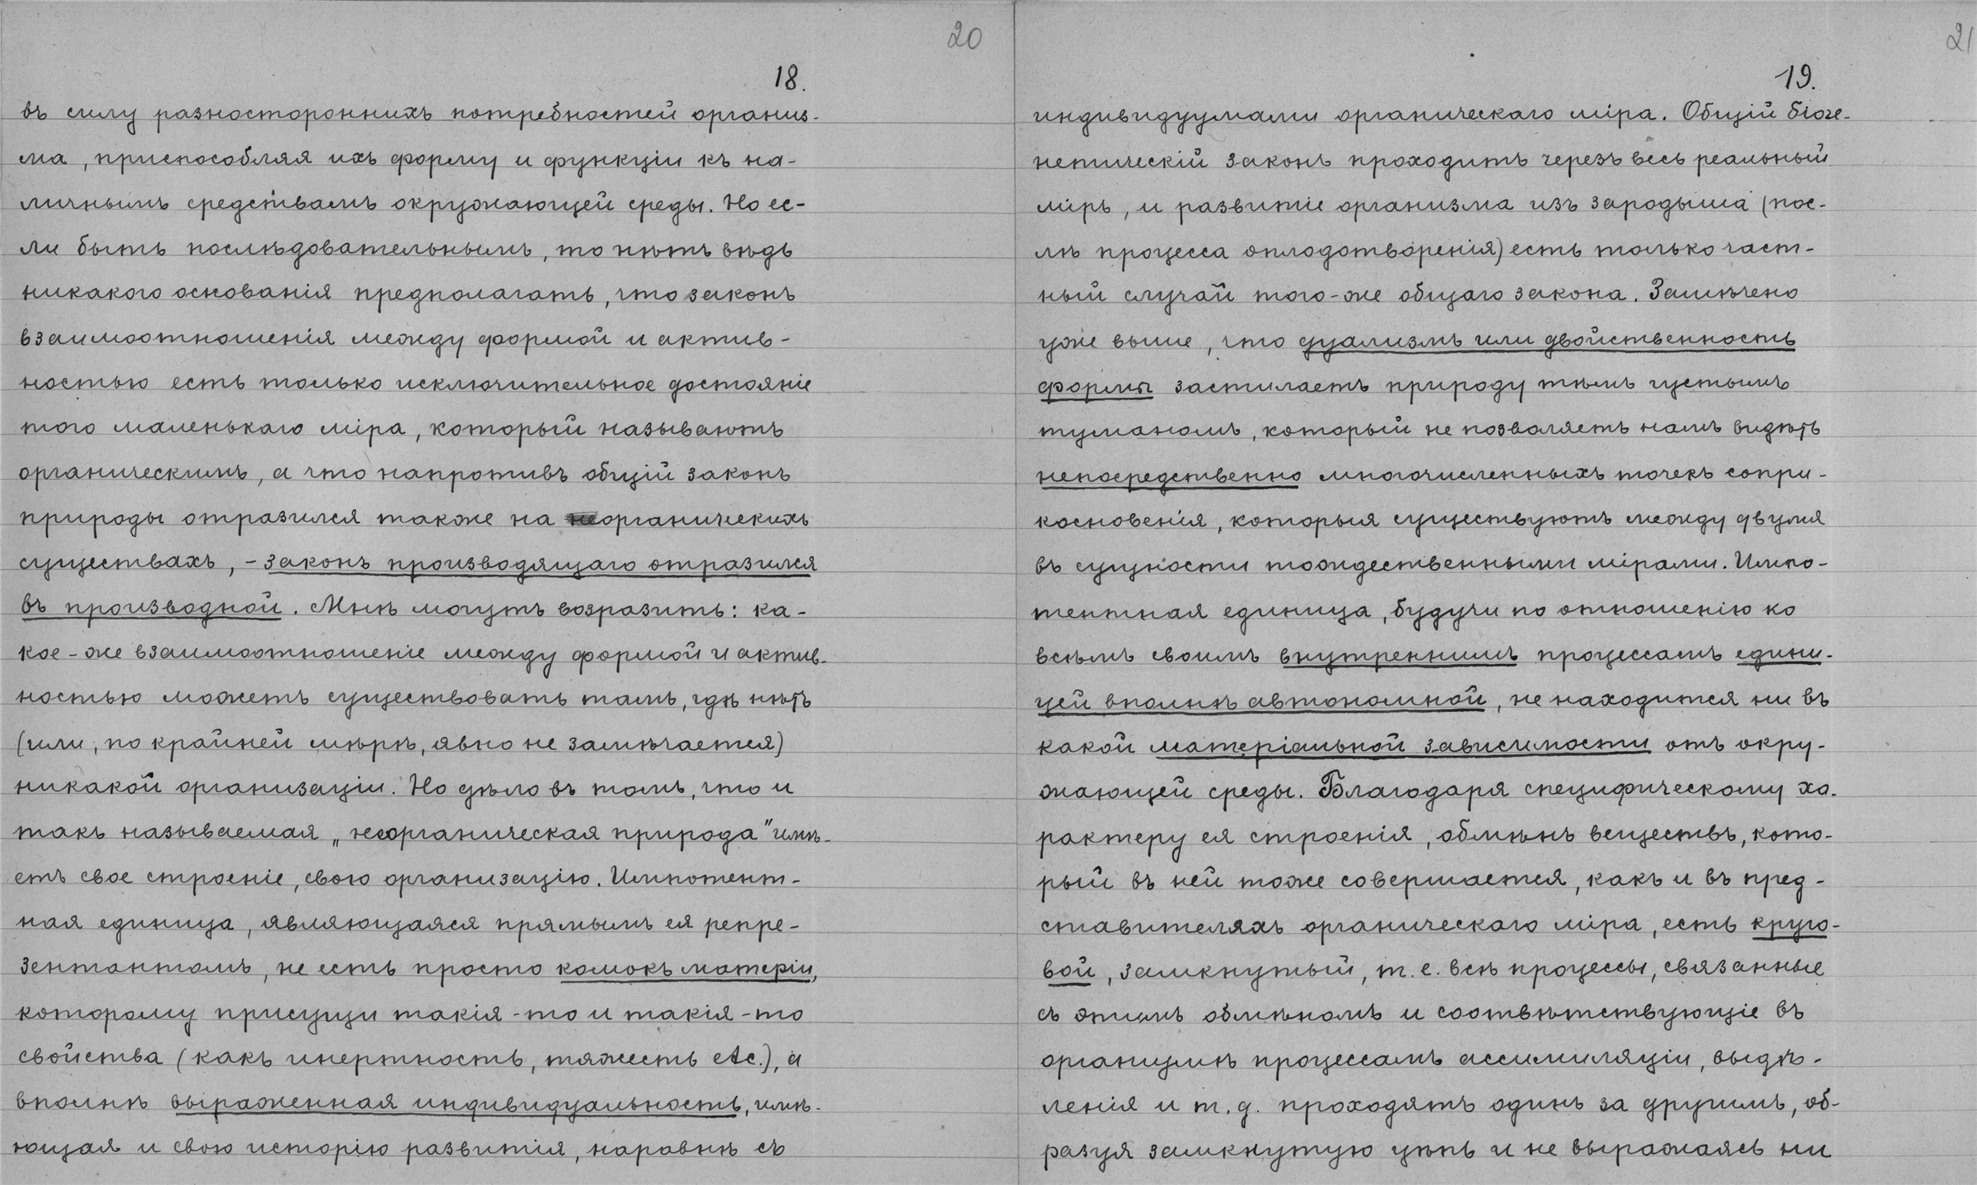 20
18.
въ силу разностороннихъ потребностей организ-
ма, приспособляя ихъ форму и функціи къ на-
личнымъ средствамъ окружающей среды. Но ес-
ли быть послѣдовательнымъ, то нѣтъ вѣдь
никакого основанія предполагать, что законъ
взаимоотношенія между формой и актив-
ностью есть только исключительное достояніе
того маленькаго міра, который называютъ
органическимъ, а что напротивъ общій законъ
природы отразился также на неорганическихъ
существахъ, - законъ производящаго отразился
въ производной. Мнѣ могутъ возразить: ка-
кое-же взаимоотношеніе между формой и актив-
ностью можетъ существовать тамъ, гдѣ нѣтъ
(или, по крайней мѣрѣ, явно не замѣчается)
никакой организаціи. Но дѣло въ томъ, что и
такъ называемая „неорганическая природа" имѣ-
етъ свое строеніе, свою организацію. Импотент-
ная единица, являющаяся прямымъ ея репре-
зентантомъ, не есть просто комокъ матеріи,
которому присущи такія-то и такія-то
свойства (какъ инертность, тяжесть etc.), а
вполнѣ выраженная индивидуальность, имѣ-
ющая и свою исторію развитія, наравнѣ съ
21
19.
индивидуумами органическаго міра. Общій біоге-
нетическій законъ проходитъ черезъ весь реальный
міръ, и развитіе организма изъ зародыша (пос-
лѣ процесса оплодотворенія) есть только част-
ный случай того-же общаго закона. Замѣчено
уже выше, что дуализмъ или двойственность
формы застилаетъ природу тѣмъ густымъ
туманомъ, который не позволяетъ намъ видѣть
непосредственно многочисленныхъ точекъ сопри-
косновенія, которыя существуютъ между двумя
въ сущности тождественными мірами. Импо-
тентная единица, будучи по отношенію ко
всѣмъ своимъ внутреннимъ процессамъ едини-
цей вполнѣ автономной, не находится ни въ
какой матеріальной зависимости отъ окру-
жающей среды. Благодаря специфическому ха-
рактеру ея строенія, обмѣнъ веществъ, кото-
рый въ ней тоже совершается, какъ и въ пред-
ставителяхъ органическаго міра, есть круго-
вой, замкнутый, т. е. всѣ процессы, связанные
съ этимъ обмѣномъ и соотвѣтствующіе въ
организмѣ процессамъ ассимиляціи, выдѣ-
ленія и т. д. проходятъ одинъ за другимъ, об-
разуя замкнутую цѣпь и не выражаясь ни